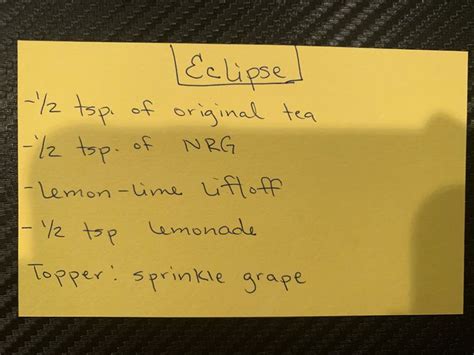 Eclipse
-1/2 tsp. of original tea
-1/2 tsp. of NRG
-Lemon-lime liftoff
- 1/2 tsp lemonade
Topper: sprinkle grape